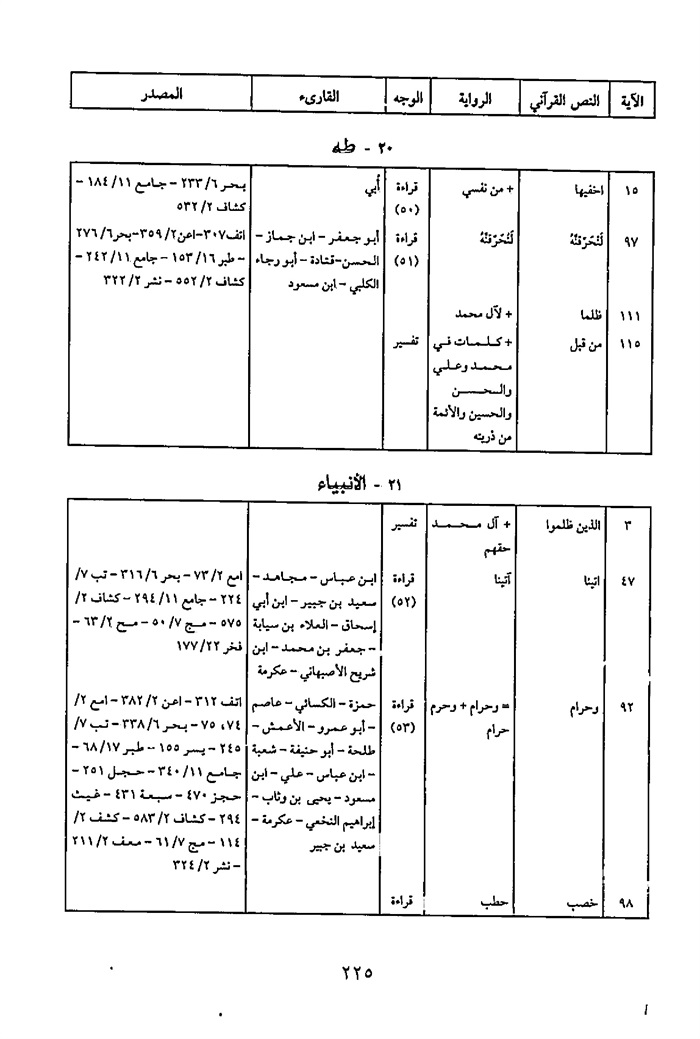 الآية النص القرآني الرواية الوجه القارىء المصدر
٢٠ - طه
١٥ اخفيها + من نفسي قراءة أُبي بحر ٢٣٣/٦ - جامع ١٨٤/١١ -
(٥٠) كشاف ٥٣٢/٢
٩٧ لَنُحَرِّقَنَّهُ لَنُحْرِقَنَّهُ قراءة أبو جعفر - ابن جماز - اتف٣٠٧-اعن٣٥٩/٢-بحر٢٧٦/٦
(٥١) الحسن-قتادة - أبو رجاء - طبر ١٥٣/١٦ - جامع ٢٤٢/١١ -
الكلبي - ابن مسعود كشاف ٥٥٢/٢ - نشر ٣٢٢/٢
١١١ ظلما + لآل محمد
١١٥ من قبل + كلمات في تفسير
محمد وعلي
والحسن
والحسين والأئمة
من ذريته
٢١ - الأنبياء
٣ الذين ظلموا + آل محمد تفسير
حقهم
٤٧ اتينا آتينا قراءة ابن عباس - مجاهد - امع ٧٣/٢ - بحر ٣١٦/٦ - تب ٧/
(٥٢) سعيد بن جبير - ابن أبي ٢٢٤ - جامع ٢٩٤/١١ - كشاف ٢/
إسحاق - العلاء بن سيابة ٥٧٥ - مج ٥٠/٧ - مح ٦٣/٢ -
- جعفر بن محمد - ابن فخر ١٧٧/٢٢
شريح الأصبهاني - عكرمة
٩٢ وحرام = وحرام + وحرم قراءة حمزة - الكسائي - عاصم اتف ٣١٢ - اعن ٣٨٢/٢ - امع ٢/
حرام (٥٣) - أبو عمرو - الأعمش - ٧٤، ٧٥ - بحر ٣٣٨/٦ - تب ٧/
طلحة - أبو حنيفة - شعبة ٢٤٥ - يسر ١٥٥ - طبر ٦٨/١٧ -
- ابن عباس - علي - ابن جامع ٣٤٠/١١ - حجل ٢٥١ -
مسعود - يحيى بن وثاب - حجز ٤٧٠ - سبعة ٤٣١ - غيث
إبراهيم النخعي - عكرمة - ٢٩٤ - كشاف ٥٨٣/٢ - كشف ٢/
سعيد بن جبير ١١٤ - مج ٦١/٧ - معف ٢١١/٢
- نشر ٣٢٤/٢
٩٨ خصب حطب قراءة
٢٢٥